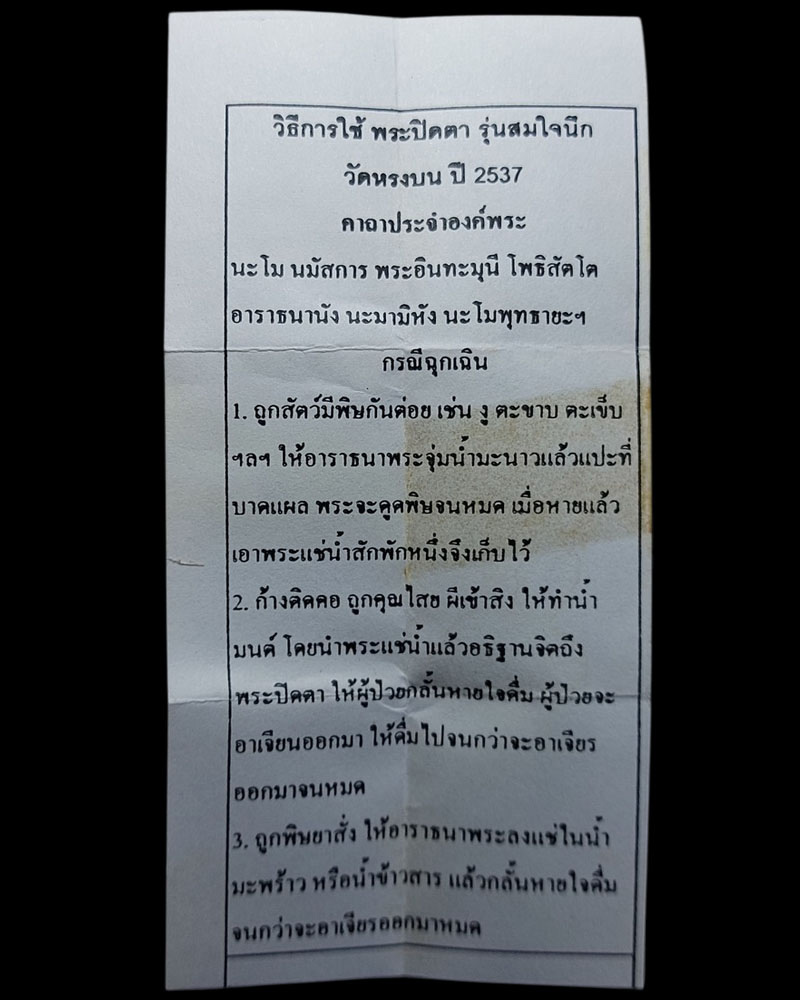 วิธีการใช้ พระปิดตา รุ่นสมใจนึก
วัดหรงบน ปี 2537
คาถาประจำองค์พระ
นะโม นมัสการ พระอินทะมุนี โพธิสัตโต
อาราธนานัง นะมามิหัง นะโมพุทธายะฯ
กรณีฉุกเฉิน
1. ถูกสัตว์มีพิษกันต่อย เช่น งู ตะขาบ ตะเข็บ
ฯลฯ ให้อาราธนาพระจุ่มน้ำมะนาวแล้วแปะที่
บาดแผล พระจะดูดพิษจนหมด เมื่อหายแล้ว
เอาพระแช่น้ำสักพักหนึ่งจึงเก็บไว้
2. ก้างติดคอ ถูกคุณไสย ผีเข้าสิง ให้ทำน้ำ
มนต์ โดยนำพระแช่น้ำแล้วอธิฐานจิตถึง
พระปิดตา ให้ผู้ป่วยกลั้นหายใจดื่ม ผู้ป่วยจะ
อาเจียนออกมา ให้ดื่มไปจนกว่าจะอาเจียร
ออกมาจนหมด
3. ถูกพิษยาสั่ง ให้อาราธนาพระลงแช่ในน้ำ
มะพร้าว หรือน้ำข้าวสาร แล้วกลั้นหายใจดื่ม
จนกว่าจะอาเจียรออกมาหมด